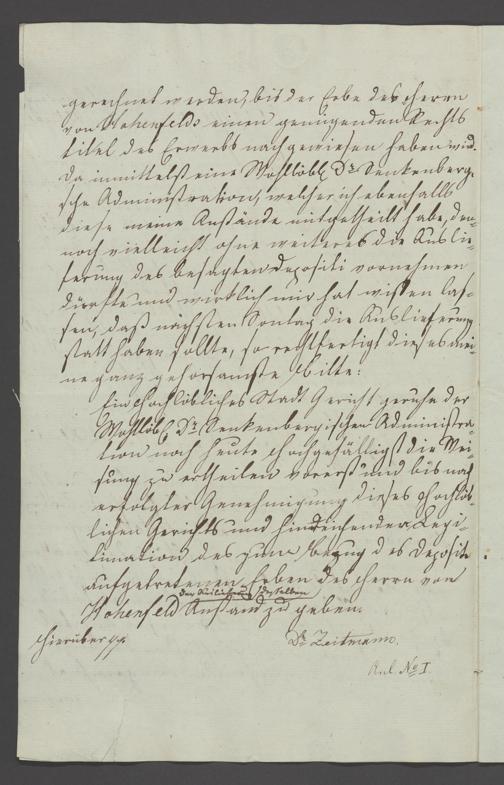 gerechnet werden, bis der Erbe des Herrn
von Hohenfelds einen genügenden Rechts
titel des Erwerbs nachgewiesen haben wird.
Da inmittelst eine Wohllöbl. Dr. Senkenbergi-
sche Administration, welcher ich ebenfalls
diese meine Anstände mitgetheilt habe, den-
noch vielleicht ohne weiteres die Auslie-
ferung des besagten Depositi vornehmen
dürfte und wirklich mir hat wissen las-
sen, daß nächsten Sontag die Auslieferung
statt haben sollte, so rechtfertigt dieses mei-
ne ganz gehorsamste Bitte:
Ein Hochlöbliches Stadt Gericht geruhe der
Wohllöbl. Dr. Senkenbergischen Administra-
tion noch heute hochgefälligst die Wei-
sung zu ertheilen vorerst und bis nach
erfolgter Genehmigung dieses Hochlöb-
lichen Gerichts und hinreichender Legi-
timation des zum Bezug des Depositi
aufgetretenen Erben des Herrn von
der Auslieferung desselben
Hohenfeld Anstand zu geben.
Hierüber pp.
Dr. Zeitmann.
Anl. No. I.